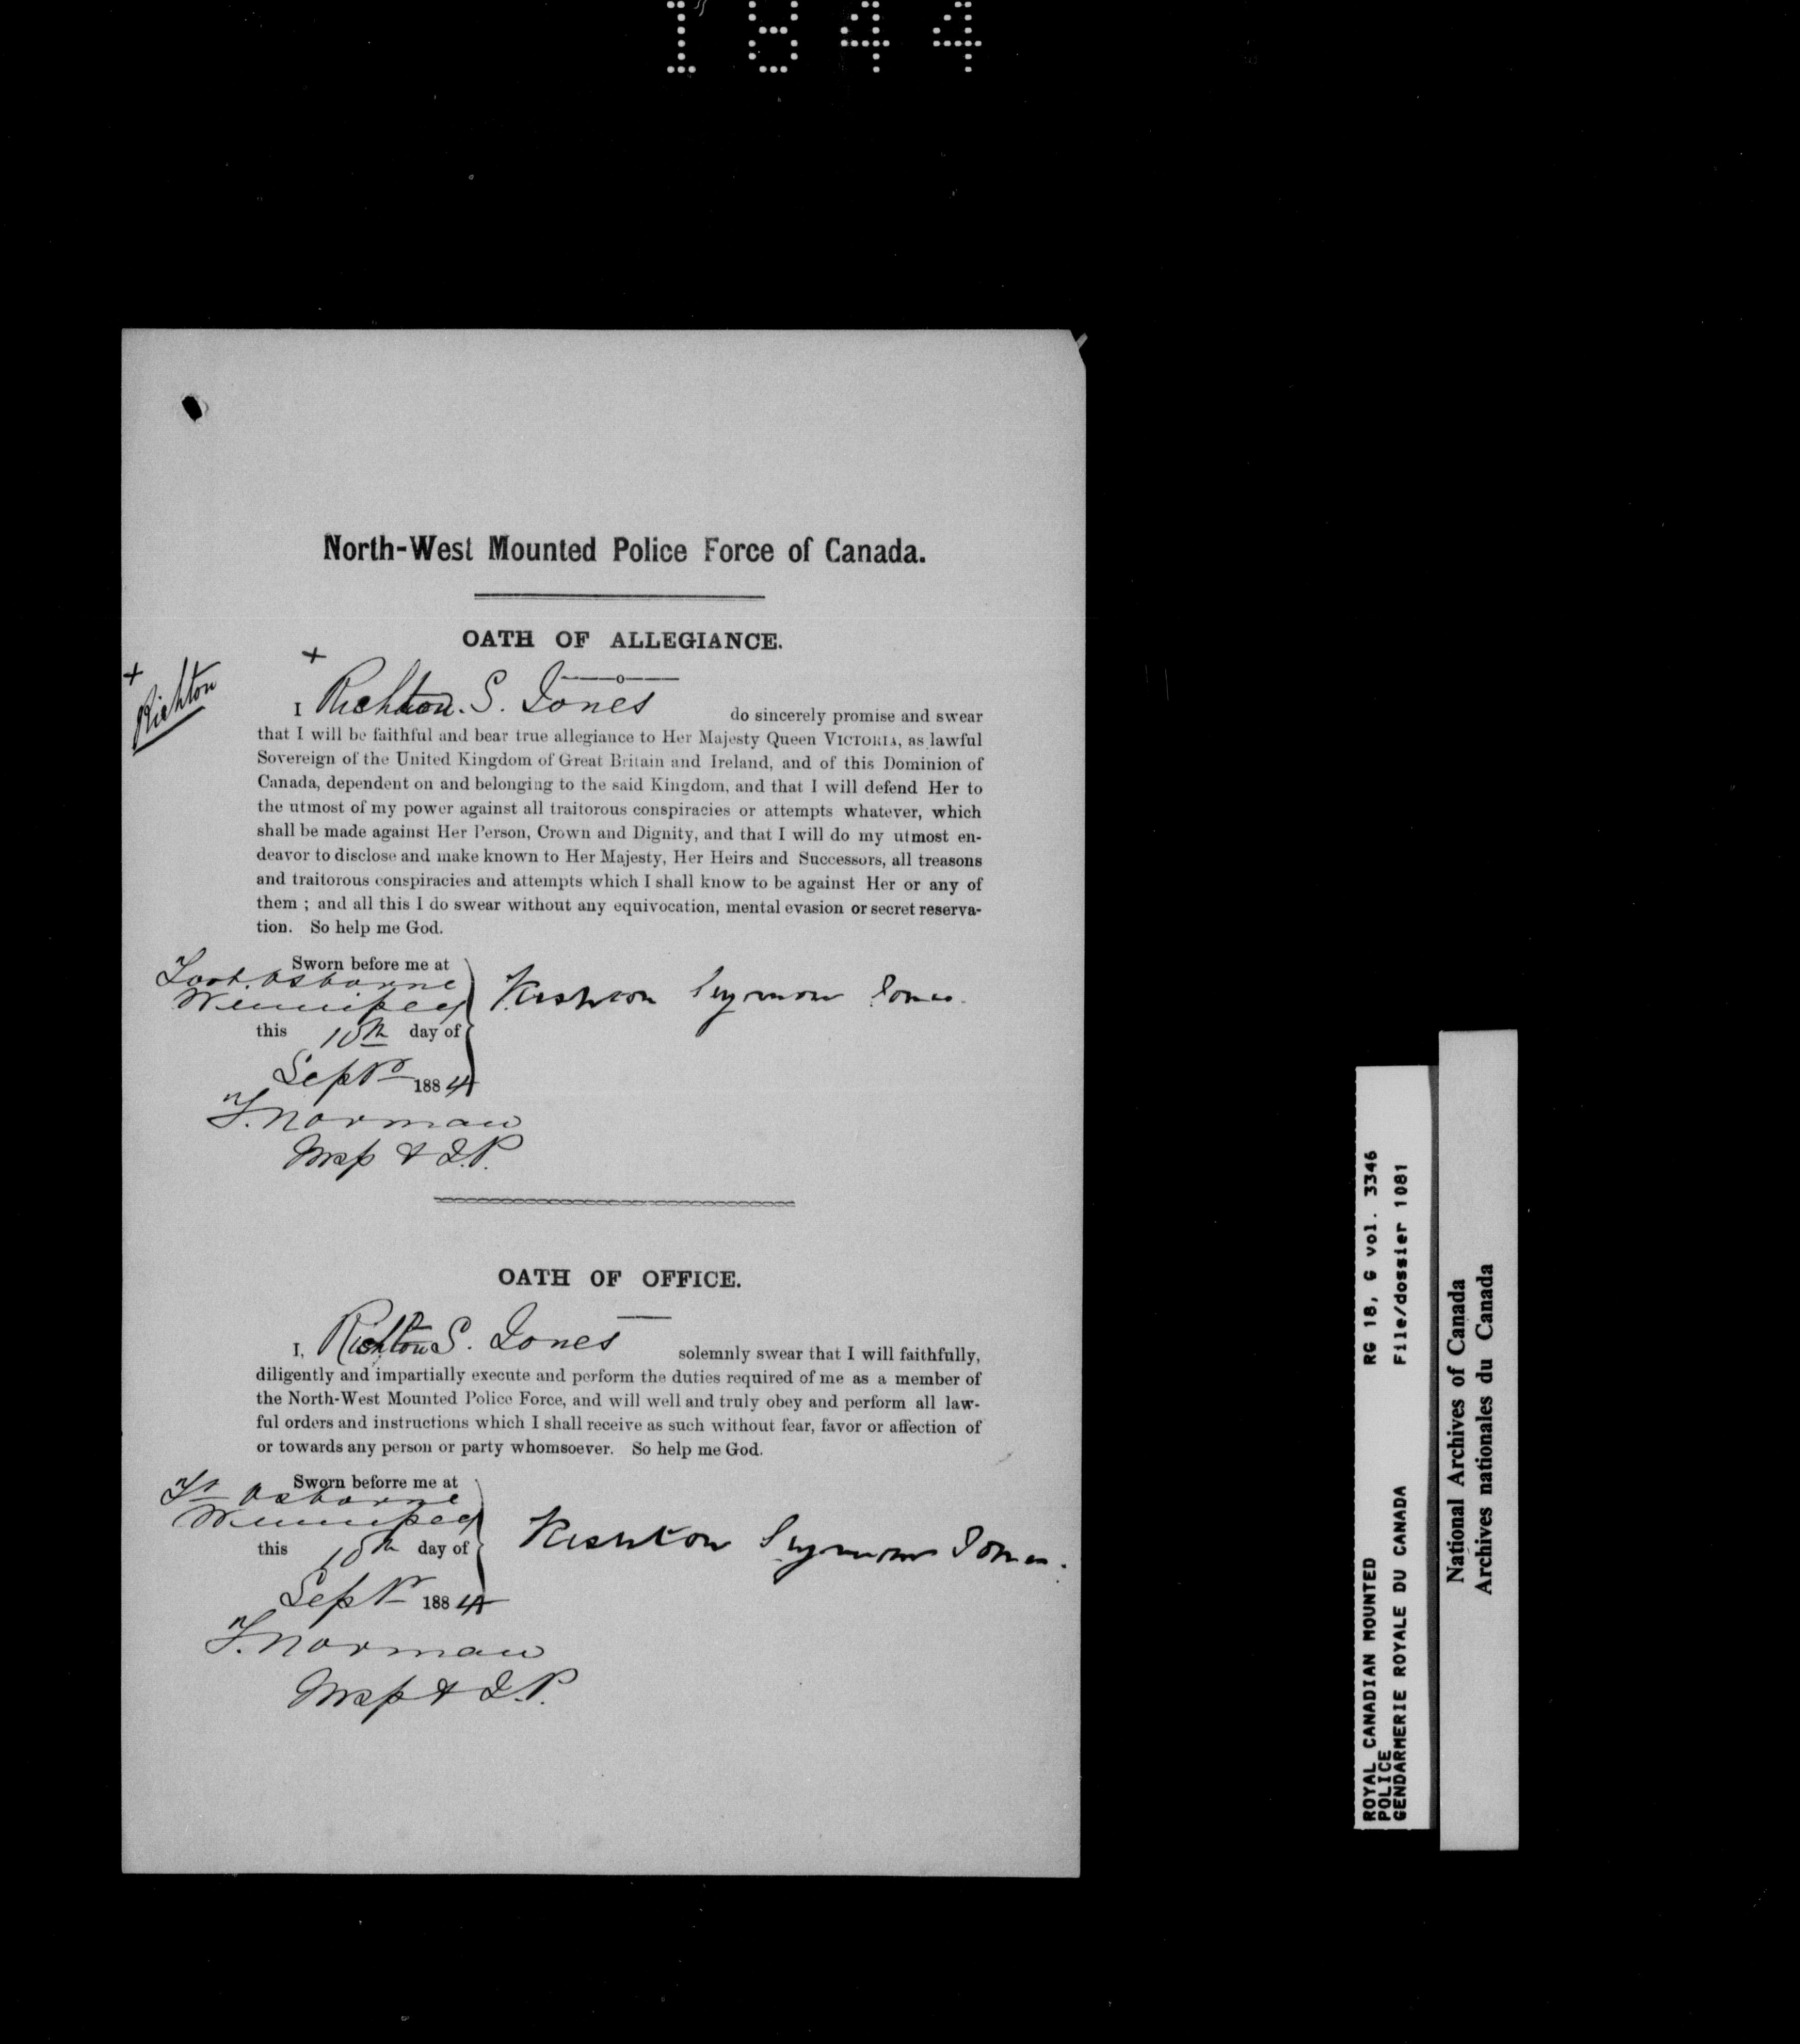 1844
North-West Mounted Police Force of Canada.
OATH OF ALLEGIANCE.
+
+ Rishton
I Rishton. S. Jones do sincerely promise and swear
that I will be faithful and bear true allegiance to Her Majesty Queen VICTORIA, as lawful
Sovereign of the United Kingdom of Great Britain and Ireland, and of this Dominion of
Canada, dependent on and belonging to the said Kingdom, and that I will defend Her to
the utmost of my power against all traitorous conspiracies or attempts whatever, which
shall be made against Her Person, Crown and Dignity, and that I will do my utmost en-
deavor to disclose and make known to Her Majesty, Her Heirs and Successors, all treasons
and traitorous conspiracies and attempts which I shall know to be against Her or any of
them ; and all this I do swear without any equivocation, mental evasion or secret reserva-
tion. So help me God.
Sworn before me at
Fort. Osborne
Winnipeg
Rishton Seymour Jones.
this 10th day of
Septr 1884
F. Norman
Insp & J.P.
OATH OF OFFICE.
I, Rishton S. Jones solemnly swear that I will faithfully,
diligently and impartially execute and perform the duties required of me as a member of
the North-West Mounted Police Force, and will well and truly obey and perform all law-
ful orders and instructions which I shall receive as such without fear, favor or affection of
or towards any person or party whomsoever. So help me God.
Sworn beforre me at
Ft Osborne
Winnipeg
Rishton Seymour Jones.
this 10th day of
Septr 1884
F. Norman
Insp & J.P.
ROYAL CANADIAN MOUNTED RG 18, G vol. 3346
POLICE
GENDARMERIE ROYALE DU CANADA File/dossier 1081
National Archives of Canada
Archives nationales du Canada